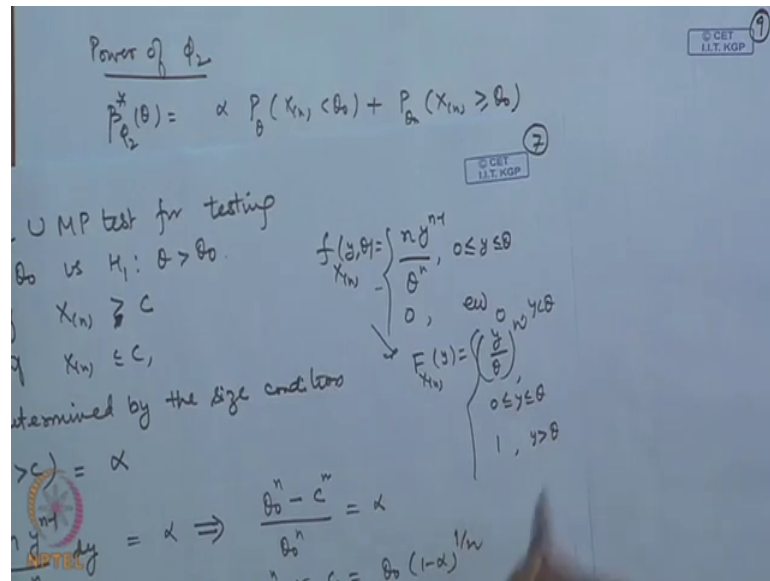 © CET
I.I.T. KGP
9
Power of ϕ₂
β*_ϕ₂(θ) = α P_θ (X₍ₙ₎ < θ₀) + P_θ₀ (X₍ₙ₎ ≥ θ₀)
7
© CET
I.I.T. KGP
UMP test for testing
θ₀ vs H₁: θ > θ₀.
X₍ₙ₎ ≥ C
X₍ₙ₎ ≤ C,
etermined by the size conditions
>C) = α
yⁿ⁻¹ dy = α ⇒ (θ₀ⁿ - cⁿ) / θ₀ⁿ = α
θ₀ (1-α)^{1/n}
f_X₍ₙ₎(y,θ) = { n yⁿ⁻¹ / θⁿ, 0 ≤ y ≤ θ
0, ew
F_X₍ₙ₎(y) = { 0, y<0
(y/θ)ⁿ,
0 ≤ y ≤ θ
1, y > θ
NPTEL